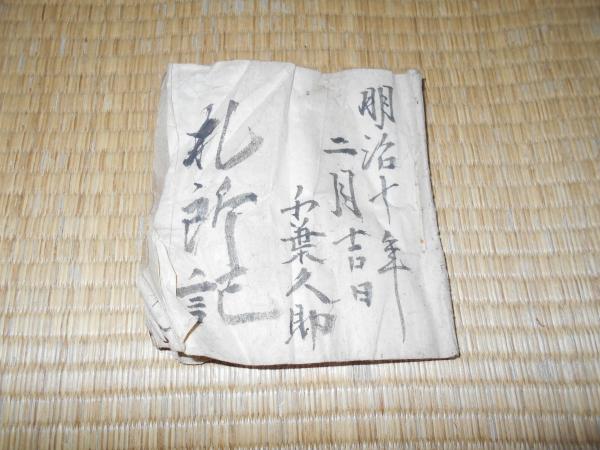 明治十年
二月吉日
千葉久助
札所記